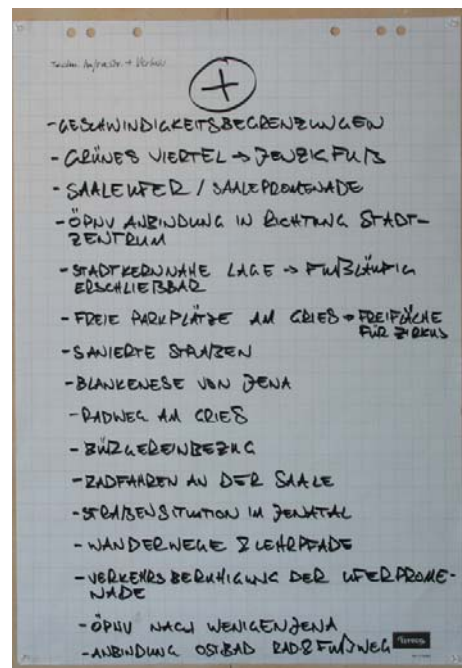 Techn. Infrastr. + Verkehr
+
- GESCHWINDIGKEITSBEGRENZUNGEN
- GRÜNES VIERTEL → JENZIGFUß
- SAALEUFER / SAALEPROMENADE
- ÖPNV ANBINDUNG IN RICHTUNG STADT-
ZENTRUM
- STADTKERNNAHE LAGE → FUßLÄUFIG
ERSCHLIEßBAR
- FREIE PARKPLÄTZE AM GRIES → FREIFLÄCHE
FÜR ZIRKUS
- SANIERTE STRAßEN
- BLANKENESE VON JENA
- RADWEG AM GRIES
- BÜRGEREINBEZUG
- RADFAHREN AN DER SAALE
- STRAßENSITUATION IM JENATAL
- WANDERWEGE & LEHRPFADE
- VERKEHRSBERUHIGUNG DER UFERPROME-
NADE
- ÖPNV NACH WENIGENJENA
- ANBINDUNG OSTBAD RAD & FUßWEG